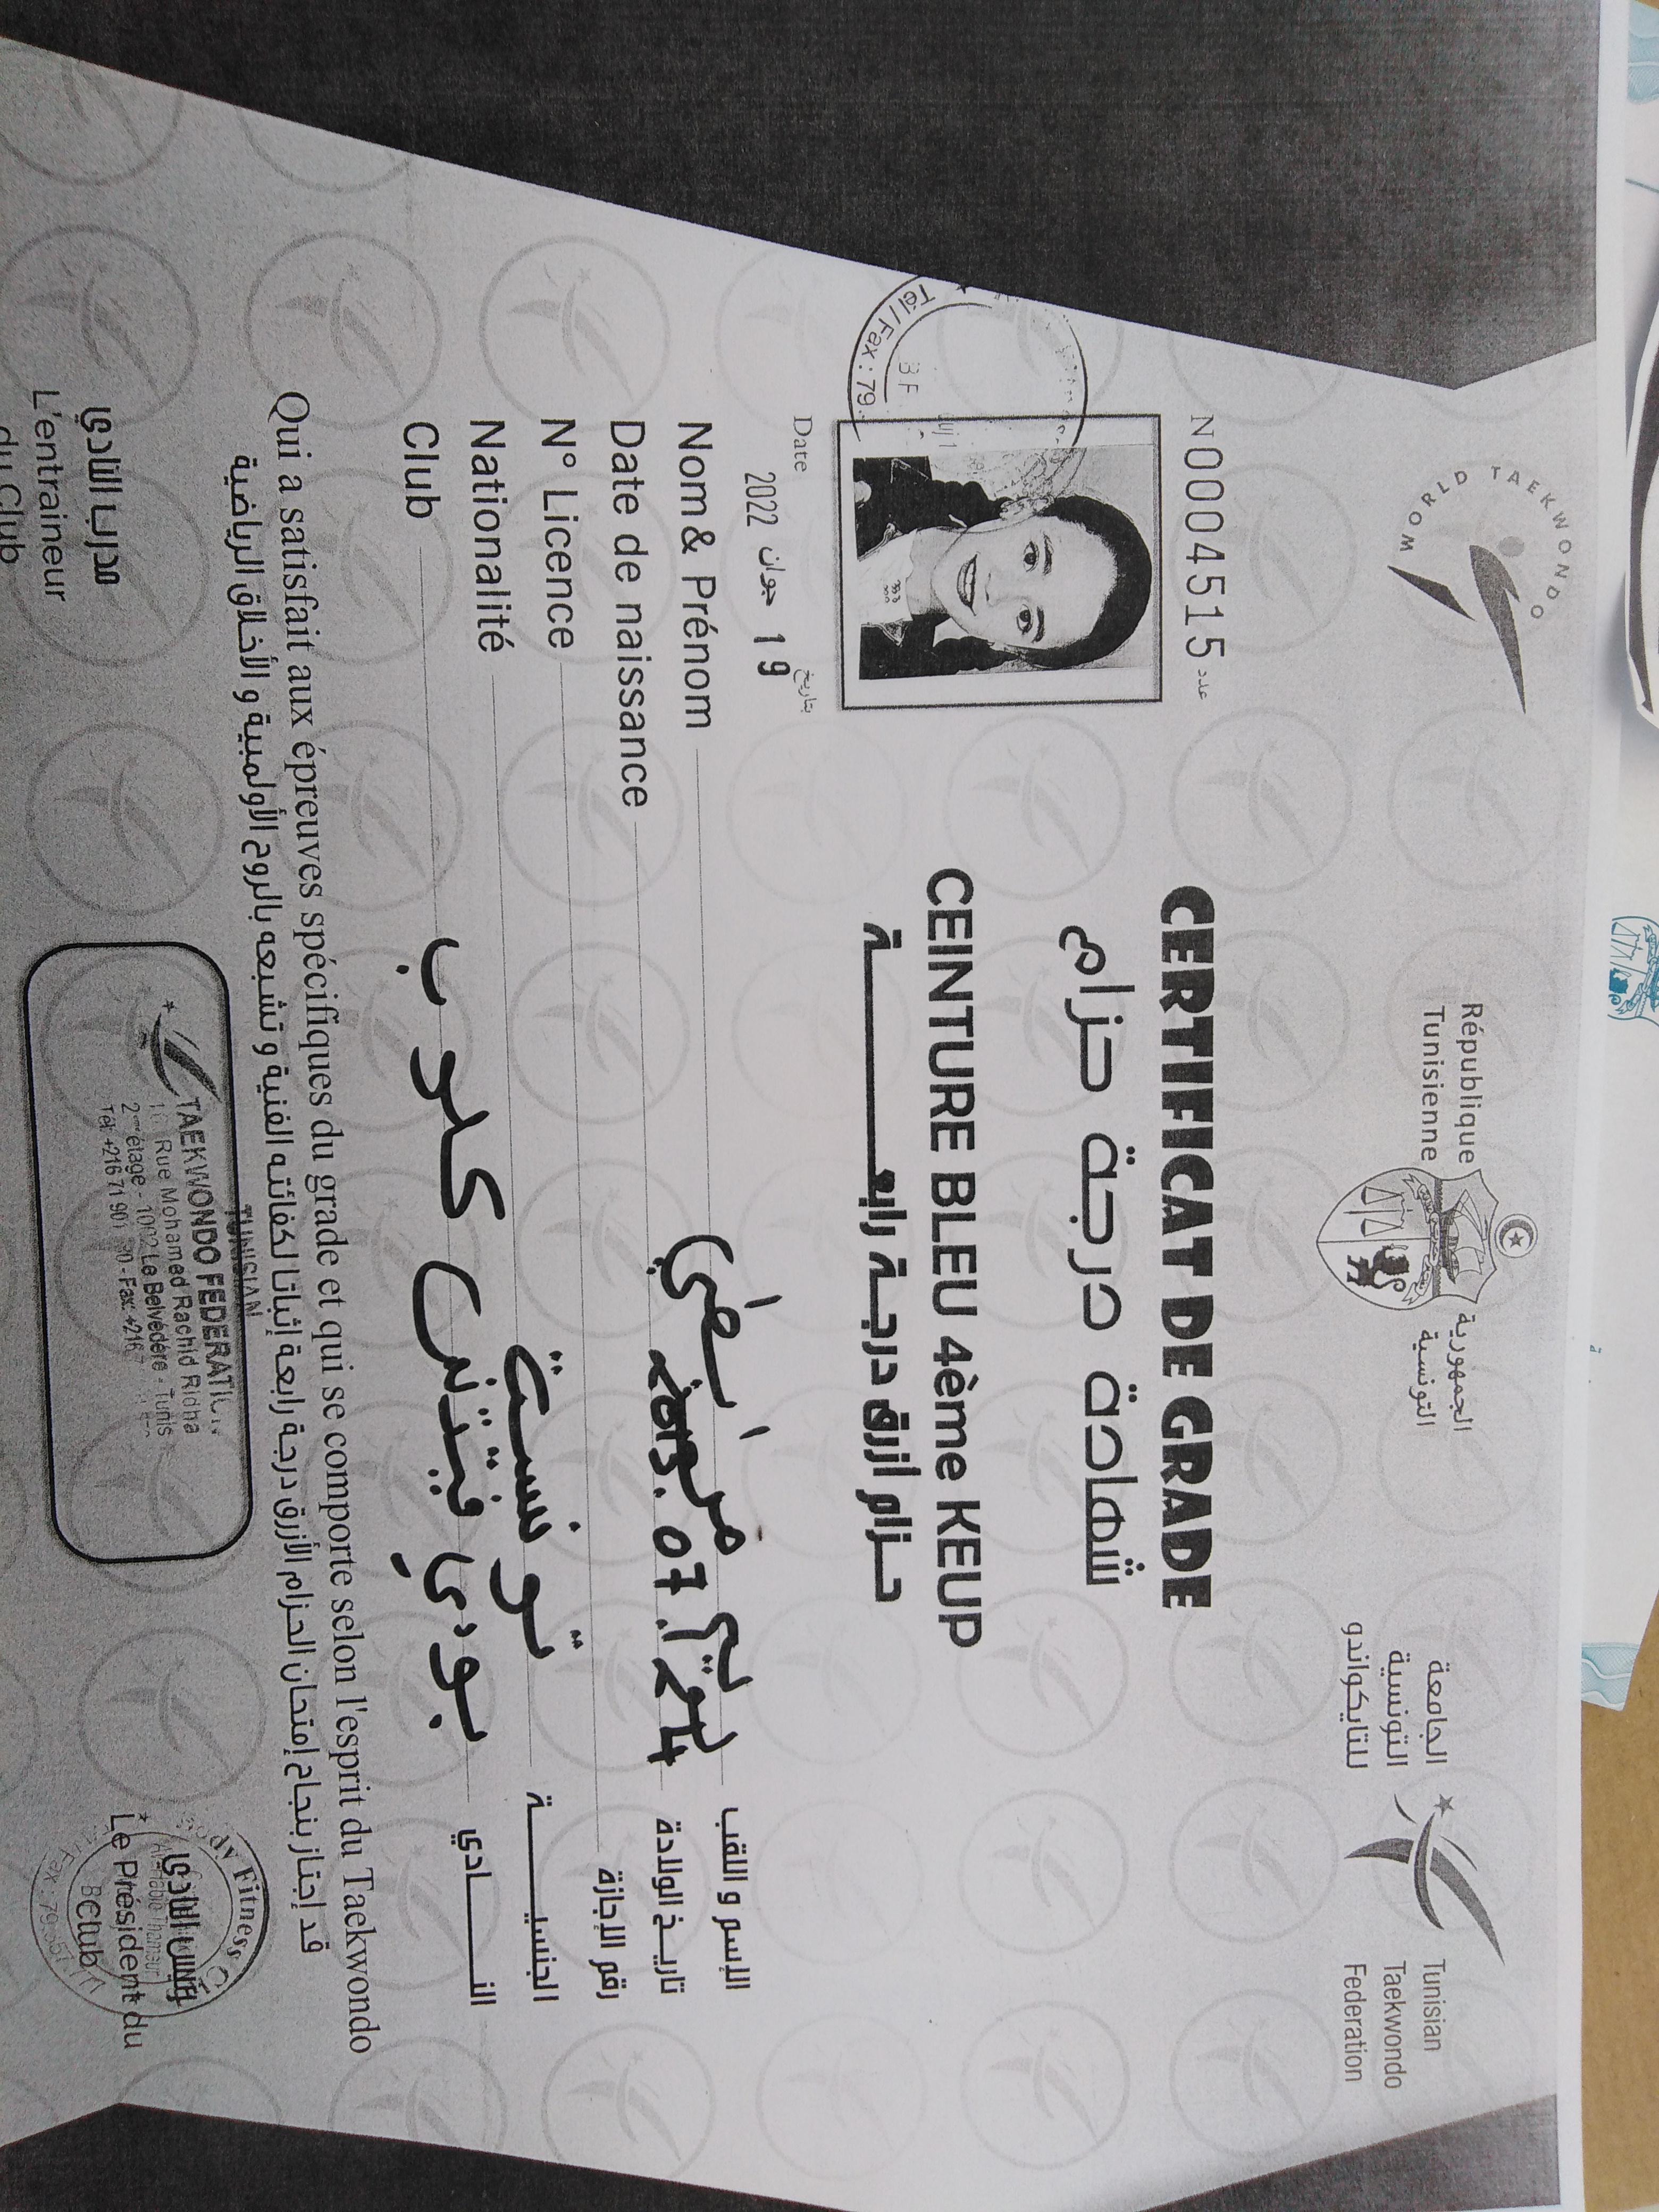 WORLD TAEKWONDO
République
Tunisienne
الجمهورية
التونسية
الجامعة
التونسية
للتايكواندو
Tunisian
Taekwondo
Federation
N0004515 عدد
CERTIFICAT DE GRADE
شهادة درجة حزام
CEINTURE BLEU 4ème KEUP
حزام ازرق درجة رابعة
Tél/Fax : 79
Date بتاريخ
19 جوان 2022
Nom & Prénom مريم الإسم و اللقب
Date de naissance تاريخ الولادة
N° Licence رقم الإجازة
Nationalité الجنسية
Club بودي فيتنس كلوب النادي
Qui a satisfait aux épreuves spécifiques du grade et qui se comporte selon l'esprit du Taekwondo
قد إجتاز بنجاح إمتحان الحزام الأزرق درجة رابعة إثباتا لكفائته الفنية و تشبعه بالروح الأولمبية و الأخلاق الرياضية
مدرب النادي
L'entraineur
du Club
TUNISIAN
TAEKWONDO FEDERATION
Rue Mohamed Rachid Ridha
2ème étage - 1002 Le Belvédère - Tunis
Tél: +216 71 901
Fax: +216
رئيس النادي
Le Président du
Club
Body Fitness